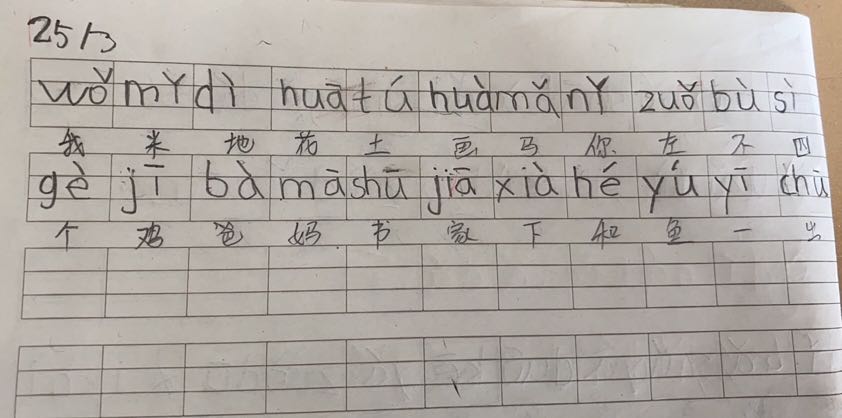 25/3
wǒ mǐ dì huā tú huà mǎ nǐ zuǒ bù sì
我 米 地 花 土 画 马 你 左 不 四
gè jī bà mā shū jiā xià hé yú yī chū
个 鸡 爸 妈 书 家 下 和 鱼 一 出